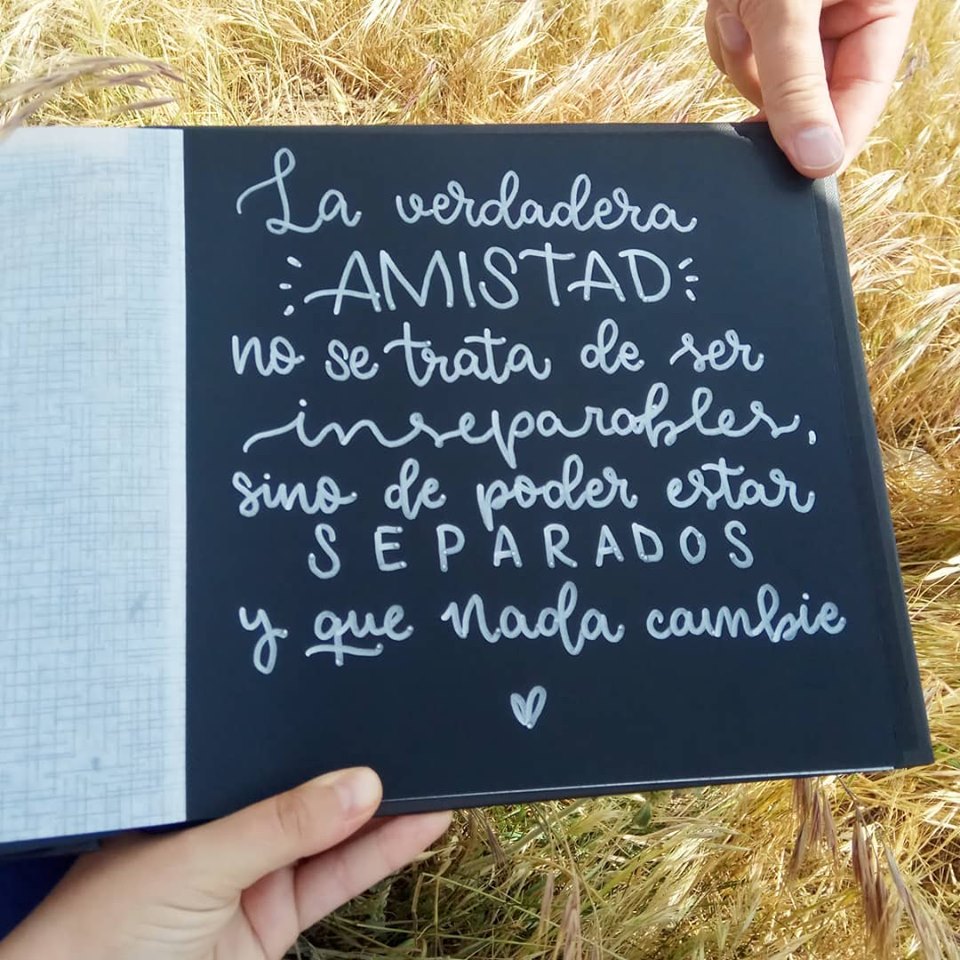 La verdadera
AMISTAD
no se trata de ser
inseparables,
sino de poder estar
SEPARADOS
y que nada cambie